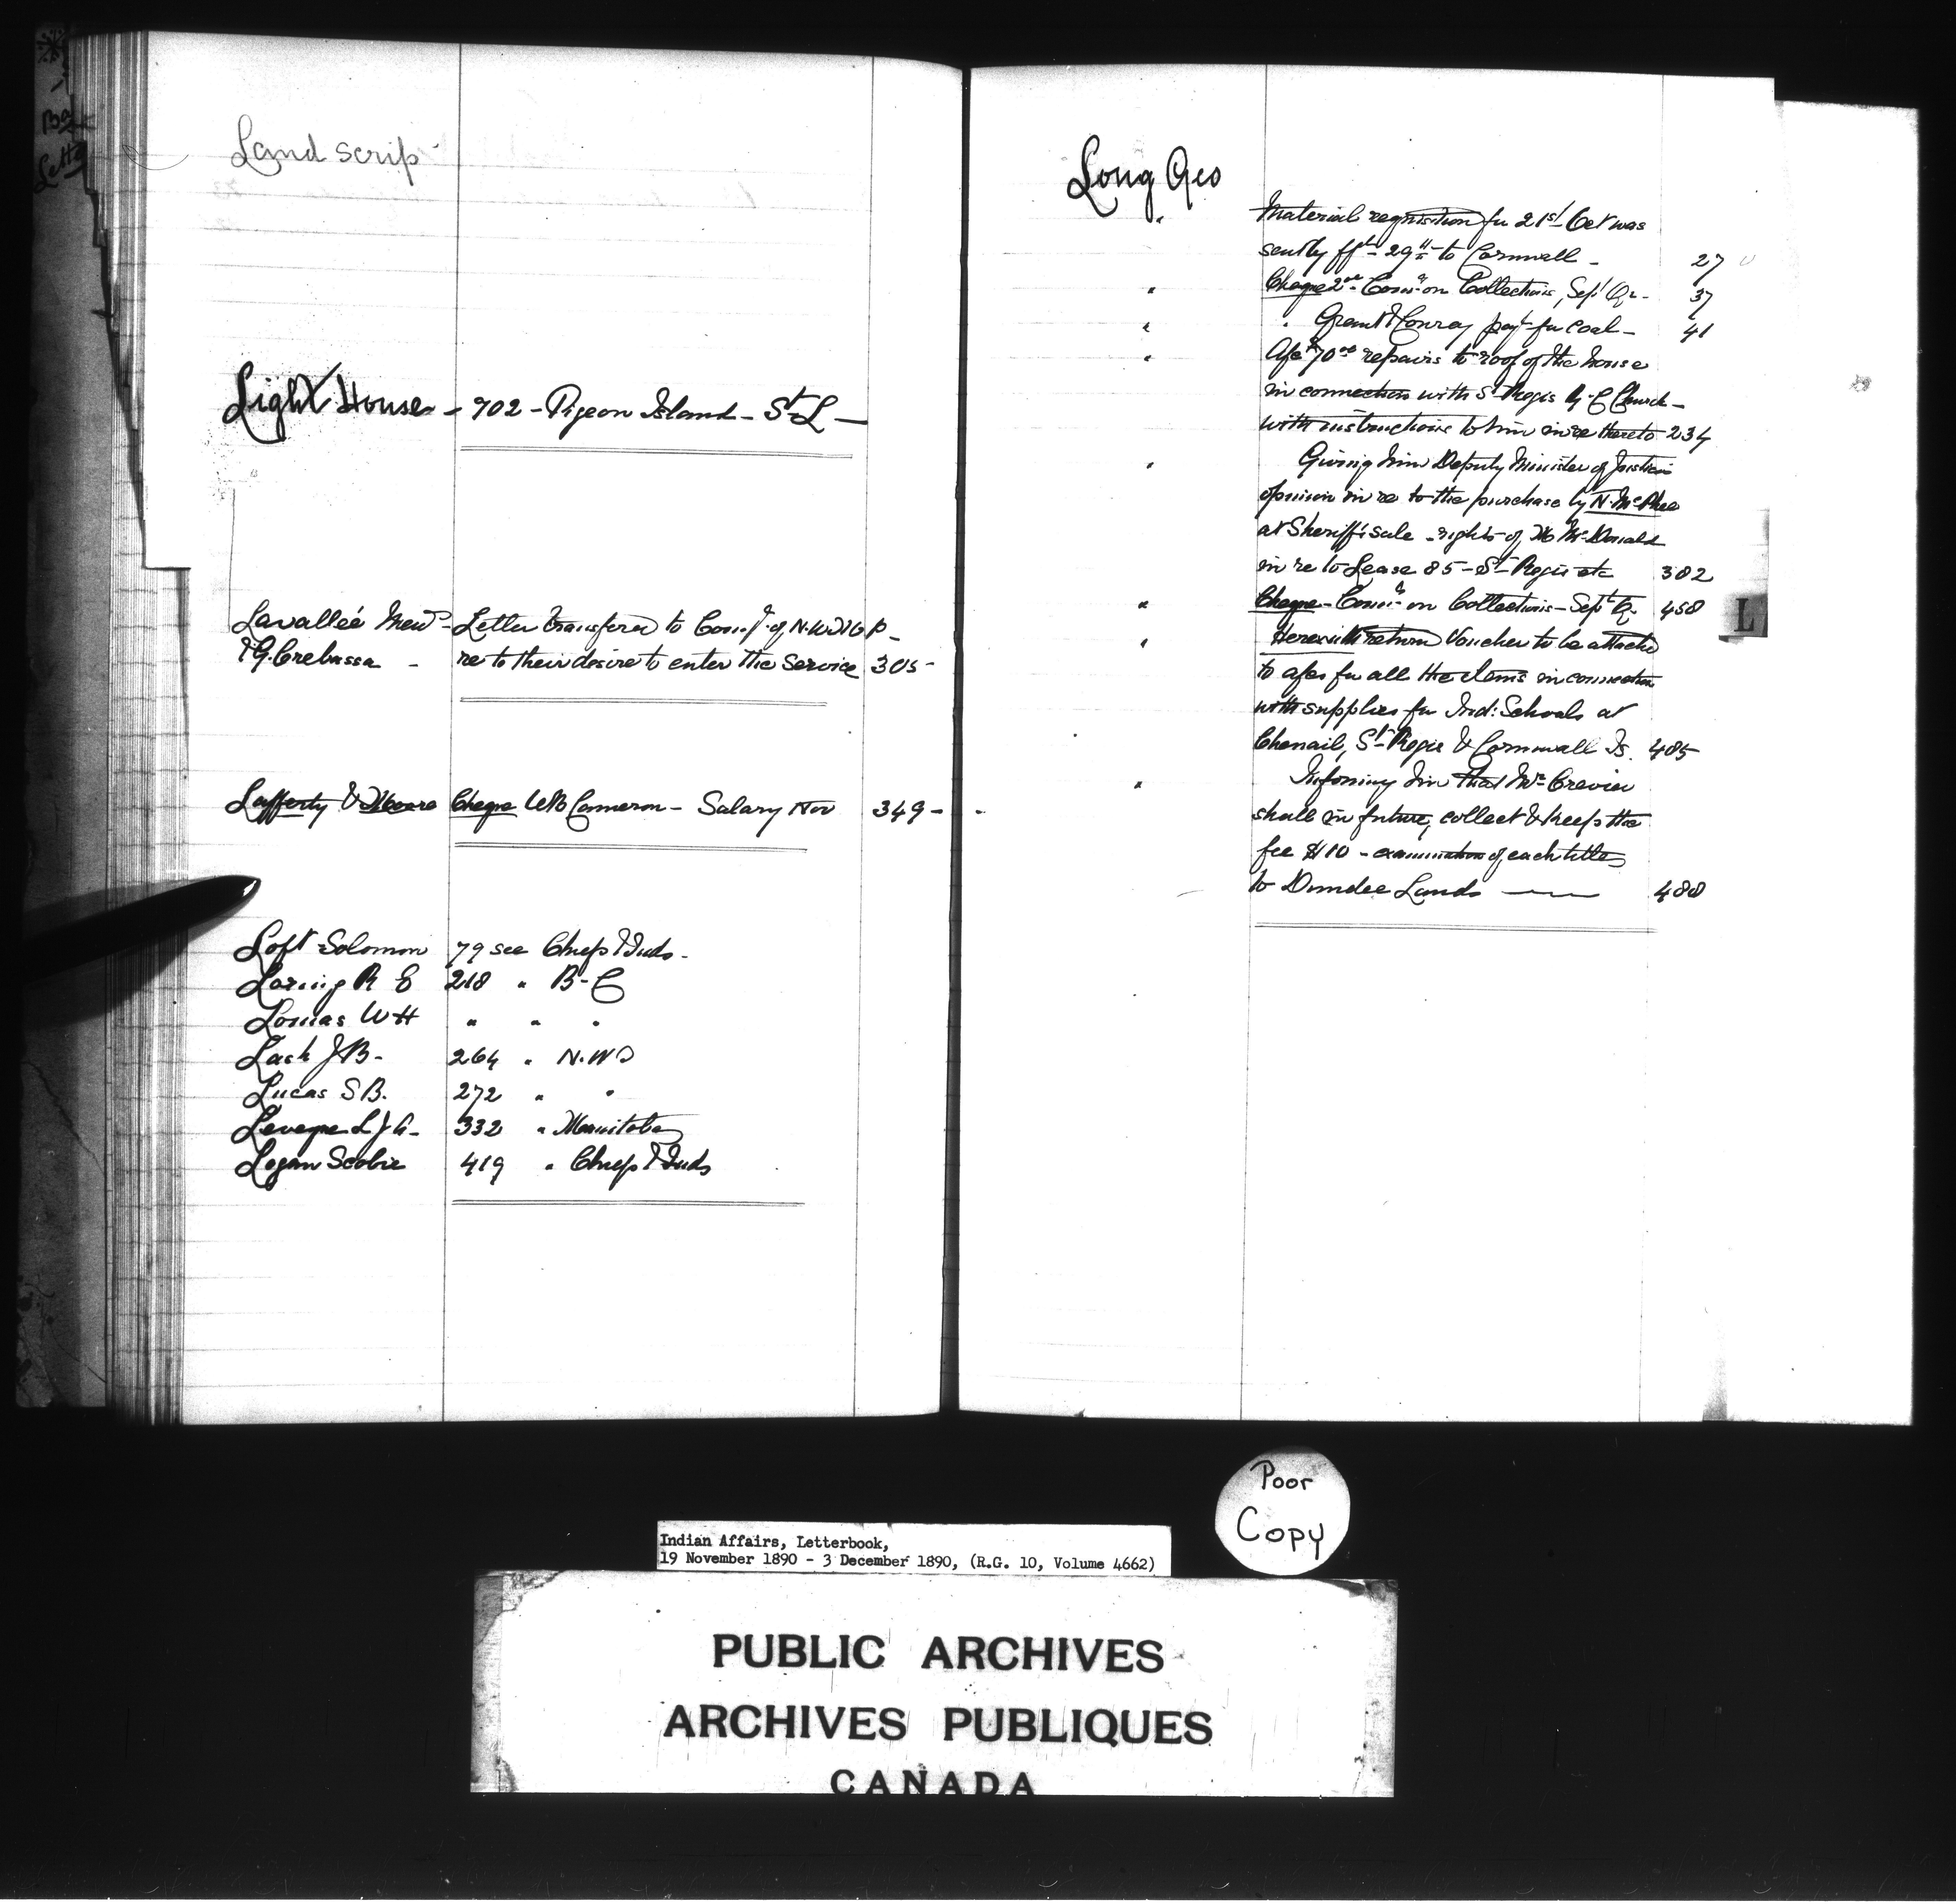 Land scrip
Light House - 902 - Pigeon Island - St L -
Lavallée - Letter transfered to Com.r of N.W.
& G. Crebassa - re to their desire to enter the Service 305 -
Lafferty & Moore Cheque WB Cameron - Salary Nov 349 -
Loft Solomon 79 see Chiefs & Inds -
Loring R E 218 " B-C
Lomas WH " " "
Lash J B - 264 " N.W
Lucas S B. 272 " "
Leveque L J A - 332 " Manitoba
Logan Scobie 419 " Chiefs & Inds
Long Geo
" Material requisition for 21st Oct was
sent by 29th to Cornwall - 27
" Cheque Comn on Collections, Sept Qr - 37
" " Grant & Conroy payt for coal - 41
" Afc $70 00 repairs to roof of the house
in connection with St Regis R. C Church -
with instructions to him in re thereto 234
" Giving him Deputy Minister of Justice
opinion in re to the purchase by N. McPhee
at Sheriff's sale - rights of McDonald
in re to Lease 85 - St Regis etc 382
" Cheque - Comn on Collections - Sept Q. 458
" Herewith return Voucher to be attached
to afcs for all the items in connection
with supplies for Ind: Schools at
Chenail, St Regis & Cornwall Is. 485
" Informing him that Mr Crevier
shall in future, collect & keep the
fee $10 - examination of each title
to Dundee Lands 488
L
Poor
Copy
Indian Affairs, Letterbook,
19 November 1890 - 3 December 1890, (R.G. 10, Volume 4662)
PUBLIC ARCHIVES
ARCHIVES PUBLIQUES
CANADA